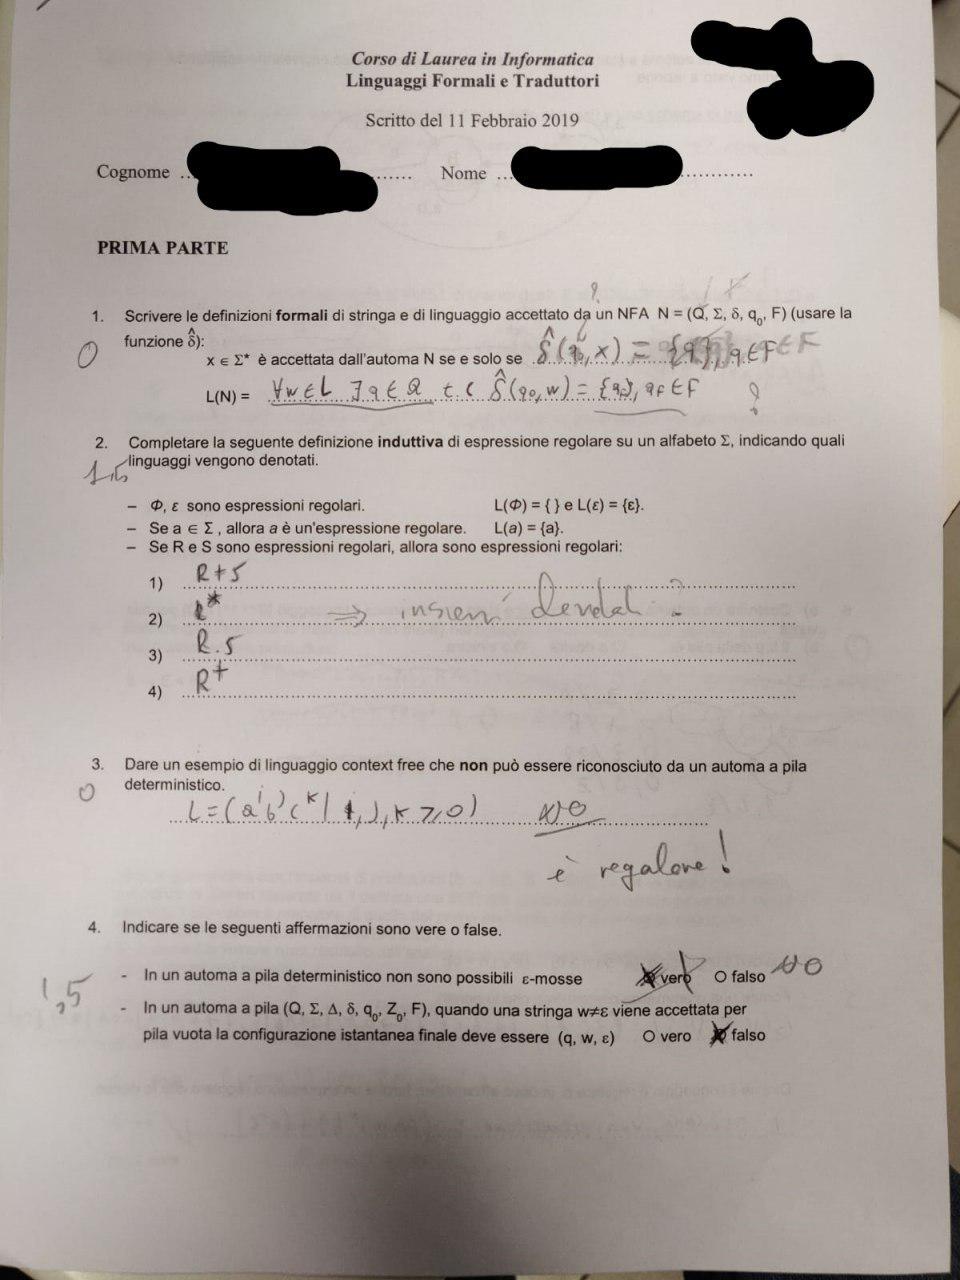 Corso di Laurea in Informatica
Linguaggi Formali e Traduttori
Scritto del 11 Febbraio 2019
Cognome .. ...... Nome ... ............
PRIMA PARTE
1. Scrivere le definizioni formali di stringa e di linguaggio accettato da un NFA N = (Q, Σ, δ, q₀, F) (usare la
funzione δ̂):
0
x ∈ Σ* è accettata dall'automa N se e solo se δ̂(q₀,x) = {q}, q∈F
L(N) = ∀w∈L ∃q∈Q t.c δ̂(q₀,w) = {q_F}, q_F∈F
2. Completare la seguente definizione induttiva di espressione regolare su un alfabeto Σ, indicando quali
linguaggi vengono denotati.
– Φ, ε sono espressioni regolari. L(Φ) = { } e L(ε) = {ε}.
– Se a ∈ Σ , allora a è un'espressione regolare. L(a) = {a}.
– Se R e S sono espressioni regolari, allora sono espressioni regolari:
1) R+S
2) ⇒ insiemi ?
3) R.S
4) R⁺
3. Dare un esempio di linguaggio context free che non può essere riconosciuto da un automa a pila
deterministico.
0
L=(aⁱbʲcᵏ| i,j,k ≥0) NO
è regolare!
4. Indicare se le seguenti affermazioni sono vere o false.
- In un automa a pila deterministico non sono possibili ε-mosse vero O falso NO
1,5
- In un automa a pila (Q, Σ, Δ, δ, q₀, Z₀, F), quando una stringa w≠ε viene accettata per
pila vuota la configurazione istantanea finale deve essere (q, w, ε) O vero falso